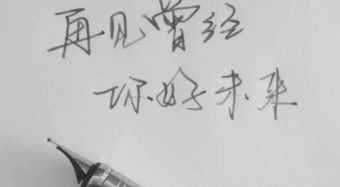 再见曾经
你好未来